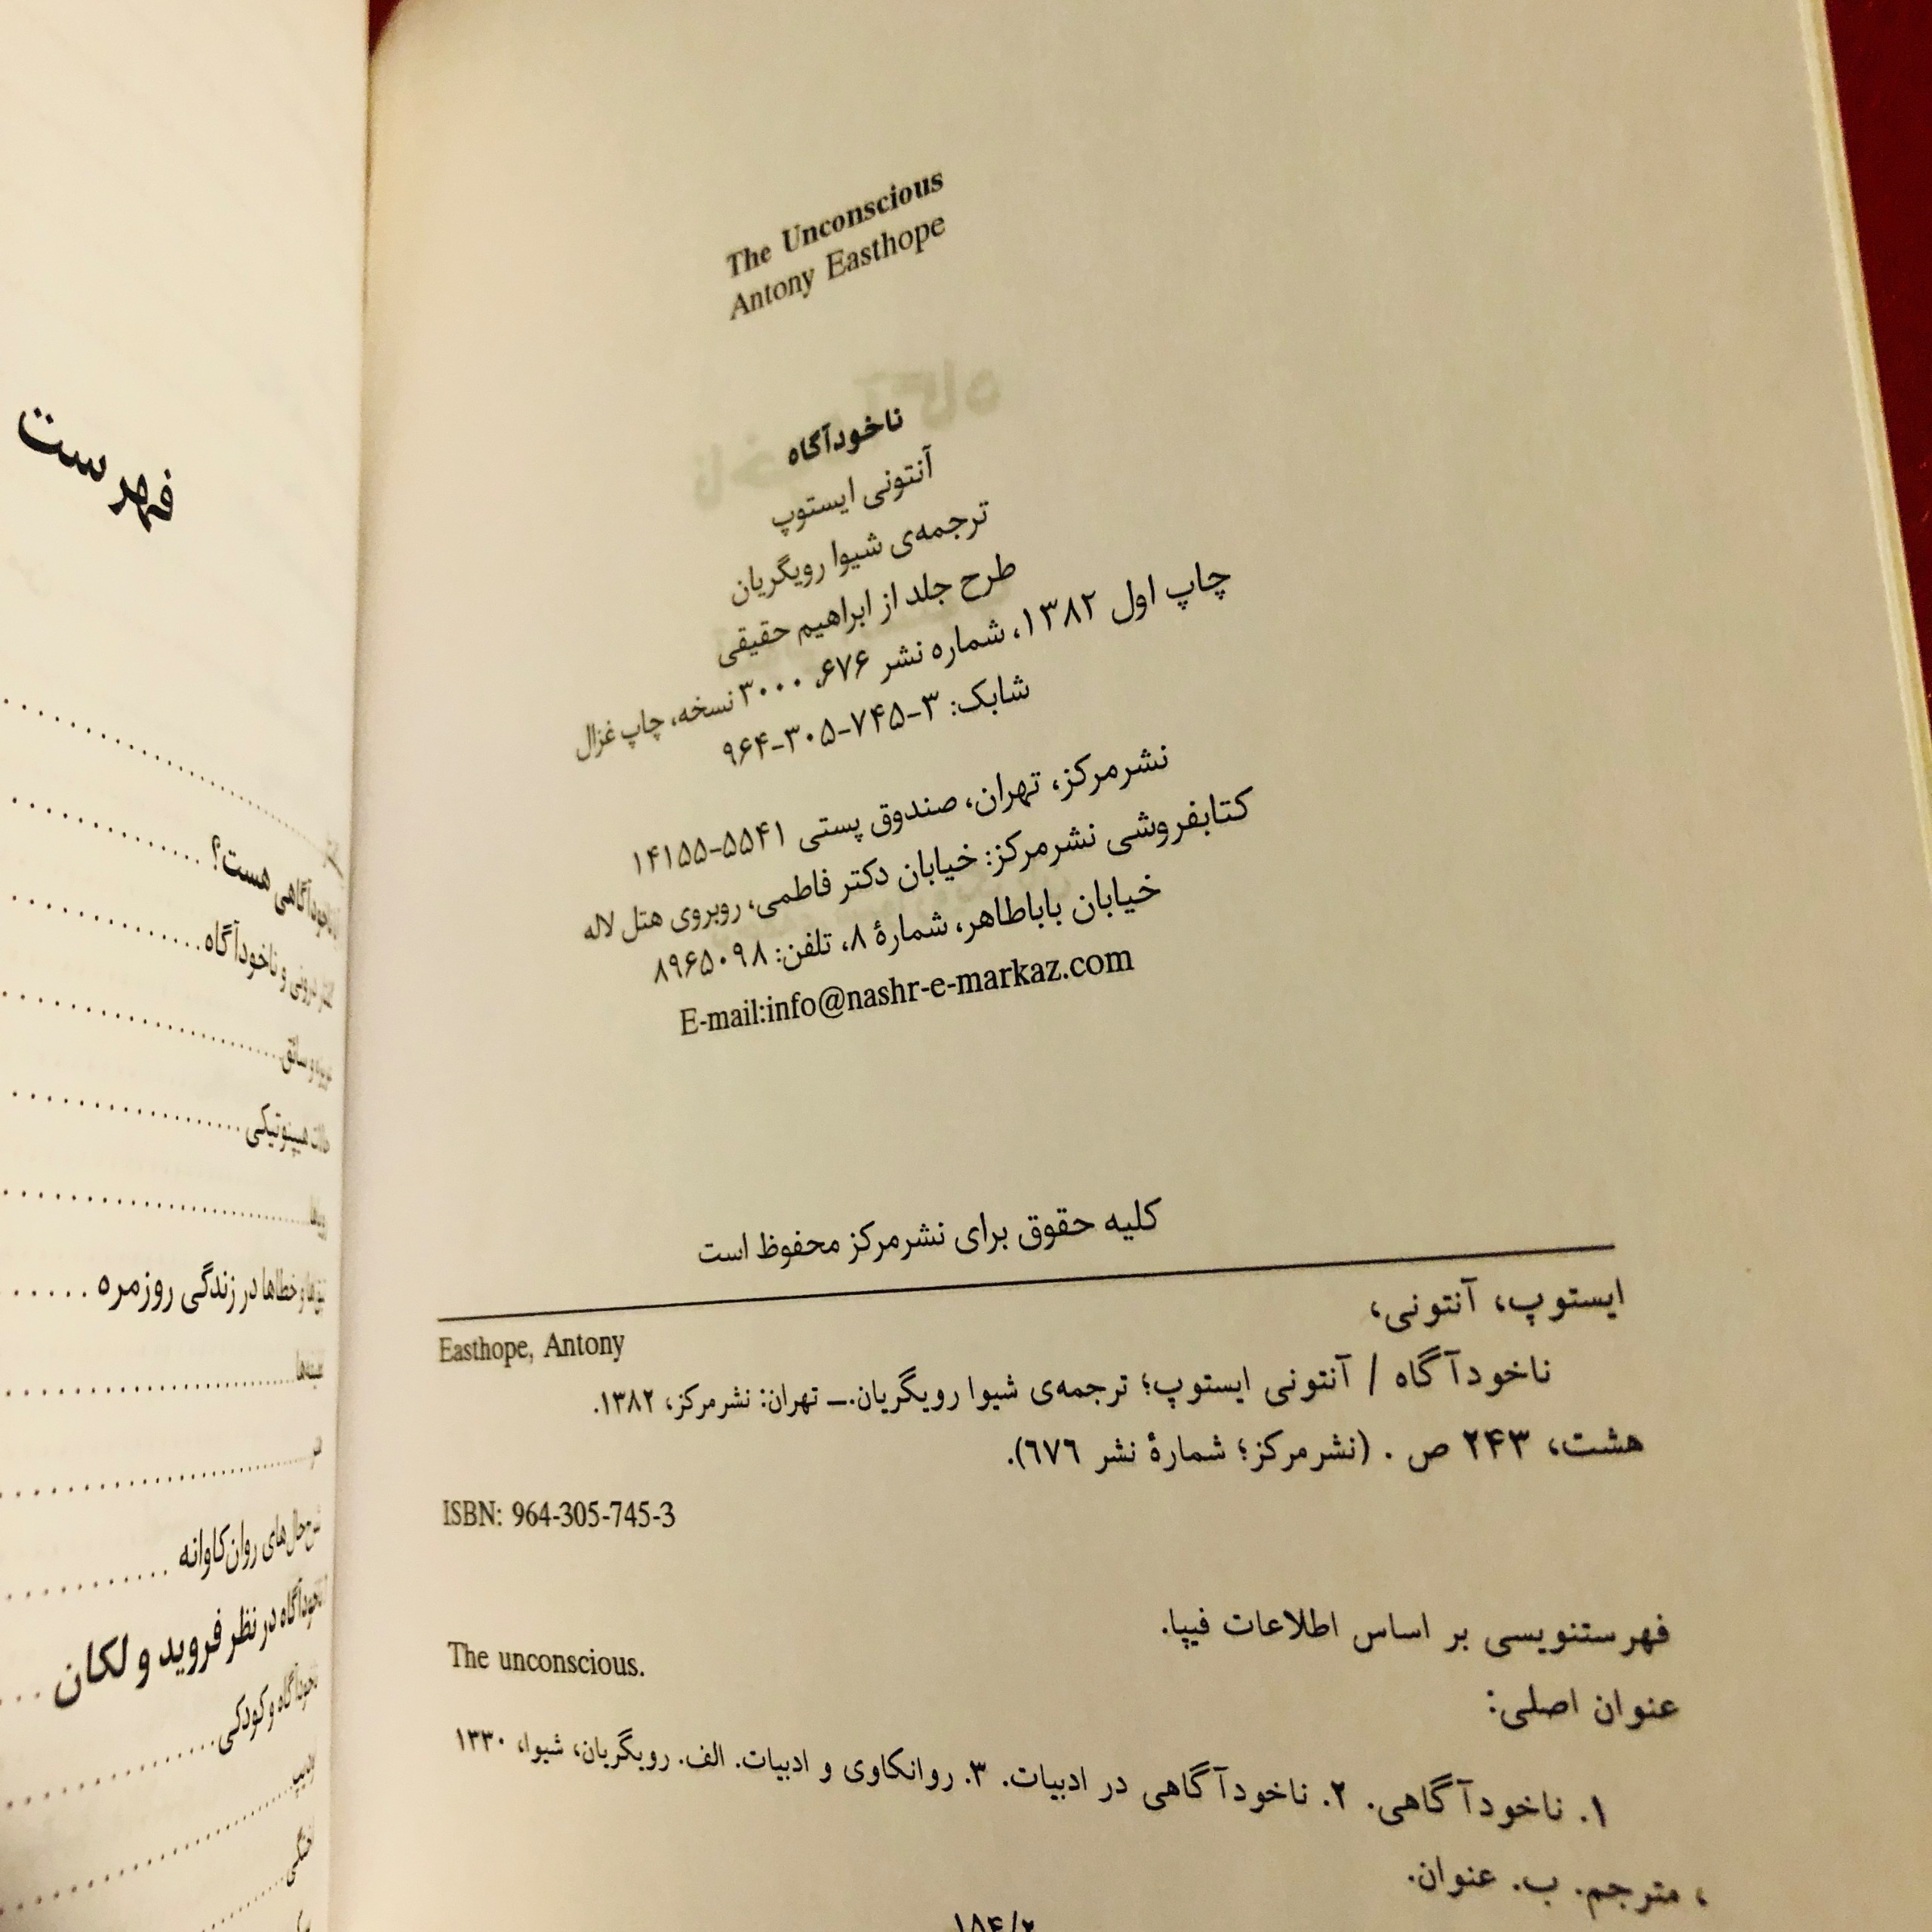 The Unconscious
Antony Easthope
ناخودآگاه
آنتونی ایستوپ
ترجمه‌ی شیوا رویگریان
طرح جلد از ابراهیم حقیقی
چاپ اول ۱۳۸۲، شماره نشر ۶۷۶، ۳۰۰۰ نسخه، چاپ غزال
شابک: ۳-۷۴۵-۳۰۵-۹۶۴
نشرمرکز، تهران، صندوق پستی ۵۵۴۱-۱۴۱۵۵
کتابفروشی نشرمرکز: خیابان دکتر فاطمی، روبروی هتل لاله
خیابان باباطاهر، شمارهٔ ۸، تلفن: ۸۹۶۵۰۹۸
E-mail:info@nashr-e-markaz.com
کلیه حقوق برای نشرمرکز محفوظ است
ایستوپ، آنتونی،
Easthope, Antony
ناخودآگاه / آنتونی ایستوپ؛ ترجمه‌ی شیوا رویگریان.ـ تهران: نشرمرکز، ۱۳۸۲.
هشت، ۲۴۳ ص . (نشرمرکز؛ شمارهٔ نشر ٦٧٦).
ISBN: 964-305-745-3
فهرستنویسی بر اساس اطلاعات فیپا.
عنوان اصلی:
The unconscious.
۱. ناخودآگاهی. ۲. ناخودآگاهی در ادبیات. ۳. روانکاوی و ادبیات. الف. رویگریان، شیوا، ۱۳۳۰
، مترجم. ب. عنوان.
فهرست
هست؟
و ناخودآگاه
هیپنوتیکی
خطاها در زندگی روزمره
روان‌کاوانه
در نظر فروید و لکان
و کودکی